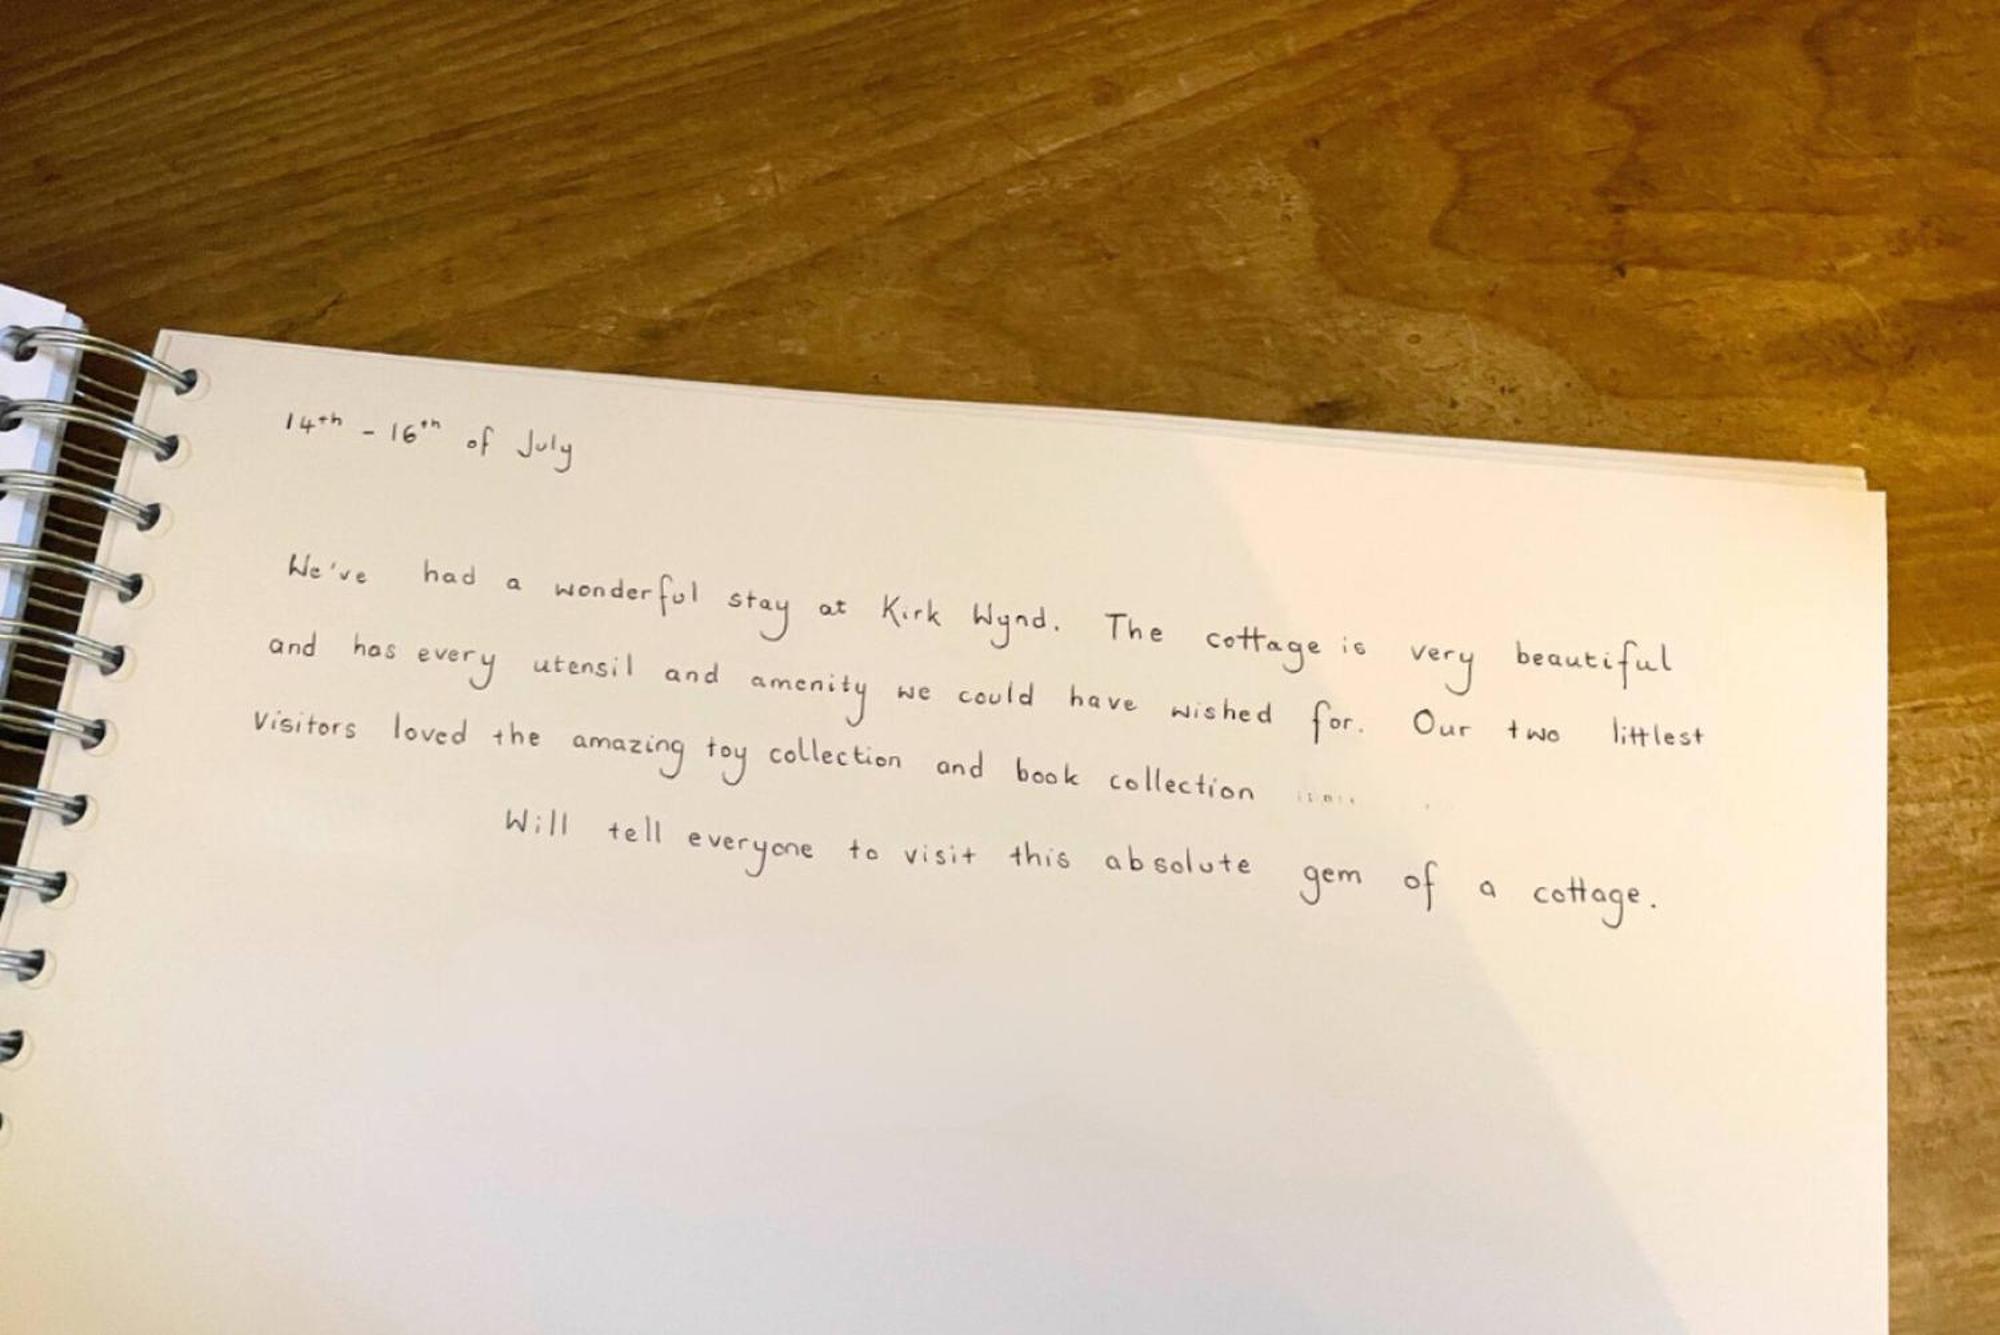 14th - 16th of July
We've had a wonderful stay at Kirk Wynd. The cottage is very beautiful
and has every utensil and amenity we could have wished for. Our two littlest
visitors loved the amazing toy collection and book collection
Will tell everyone to visit this absolute gem of a cottage.